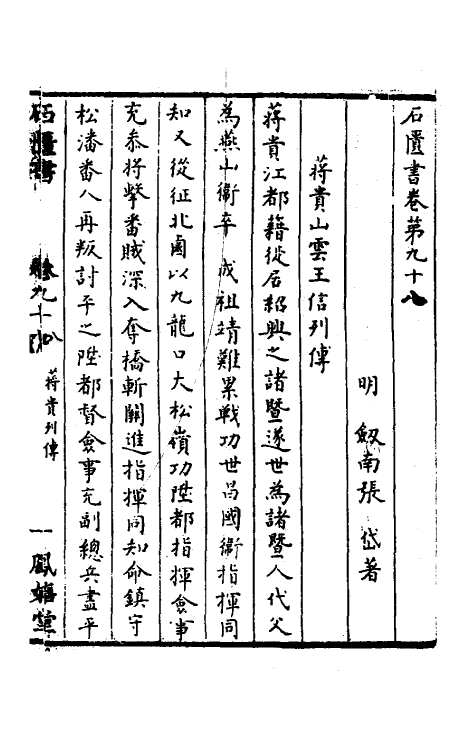 石匱書卷第九十八
明 劔南張 岱著
蔣貴山雲王信列傳
蔣貴江都籍從居紹興之諸暨遂世為諸暨人代父
為燕山衞卒 成祖靖難累戰功世昌國衞指揮同
知又從征北鹵以九龍口大松嶺功陞都指揮僉事
充叅將擊番賊深入奪橋斬關進指揮同知命鎮守
松潘番人再叛討平之陞都督僉事充副總兵盡平
石匱書 卷九十八 蔣貴列傳 一 鳳嬉堂